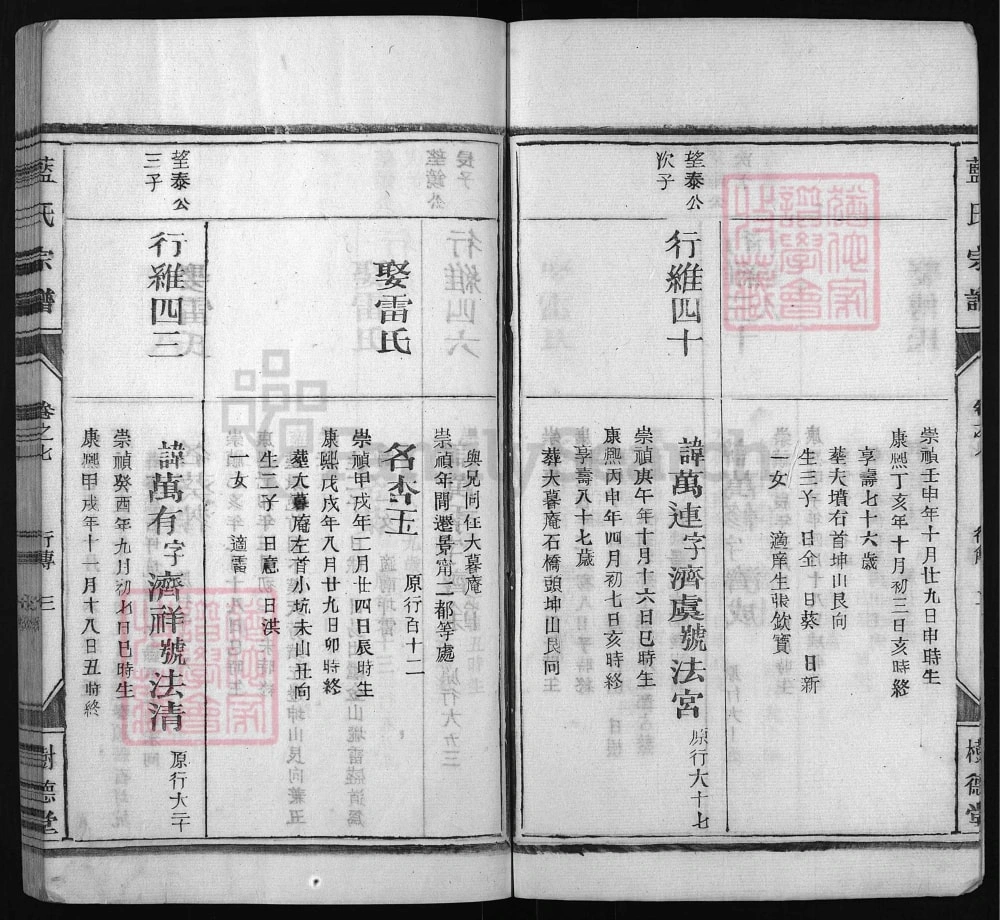 藍氏宗譜
樹德堂
崇禎壬申年十月廿九日申時生
康熙丁亥年十月初三日亥時終
享壽七十六歲
葬大墳右首坤山艮向
生三子 日全 日葵 日新
一女 適庠生張欽寶
望泰公
次子
行維四十
諱萬連字濟虞號法宮 原行大十七
崇禎庚午年十月十六日巳時生
康熙丙申年四月初七日亥時終
享壽八十七歲
葬大暮庵石橋頭坤山艮向
與兄同住大暮庵
崇禎年間遷景甯二都等處
娶雷氏
名杏玉 原行百十二
崇禎甲戌年二月廿四日辰時生
康熙戊戌年八月廿九日卯時終
墓大暮庵左首小坑未山丑向
生二子 日意 日洪
一女 適雷
望泰公
三子
行維四三
諱萬有字濟祥號法清 原行大二十
崇禎癸酉年九月初七日巳時生
康熙甲戌年十一月十八日丑時終
藍氏宗譜
卷之七
行傳
三
樹德堂